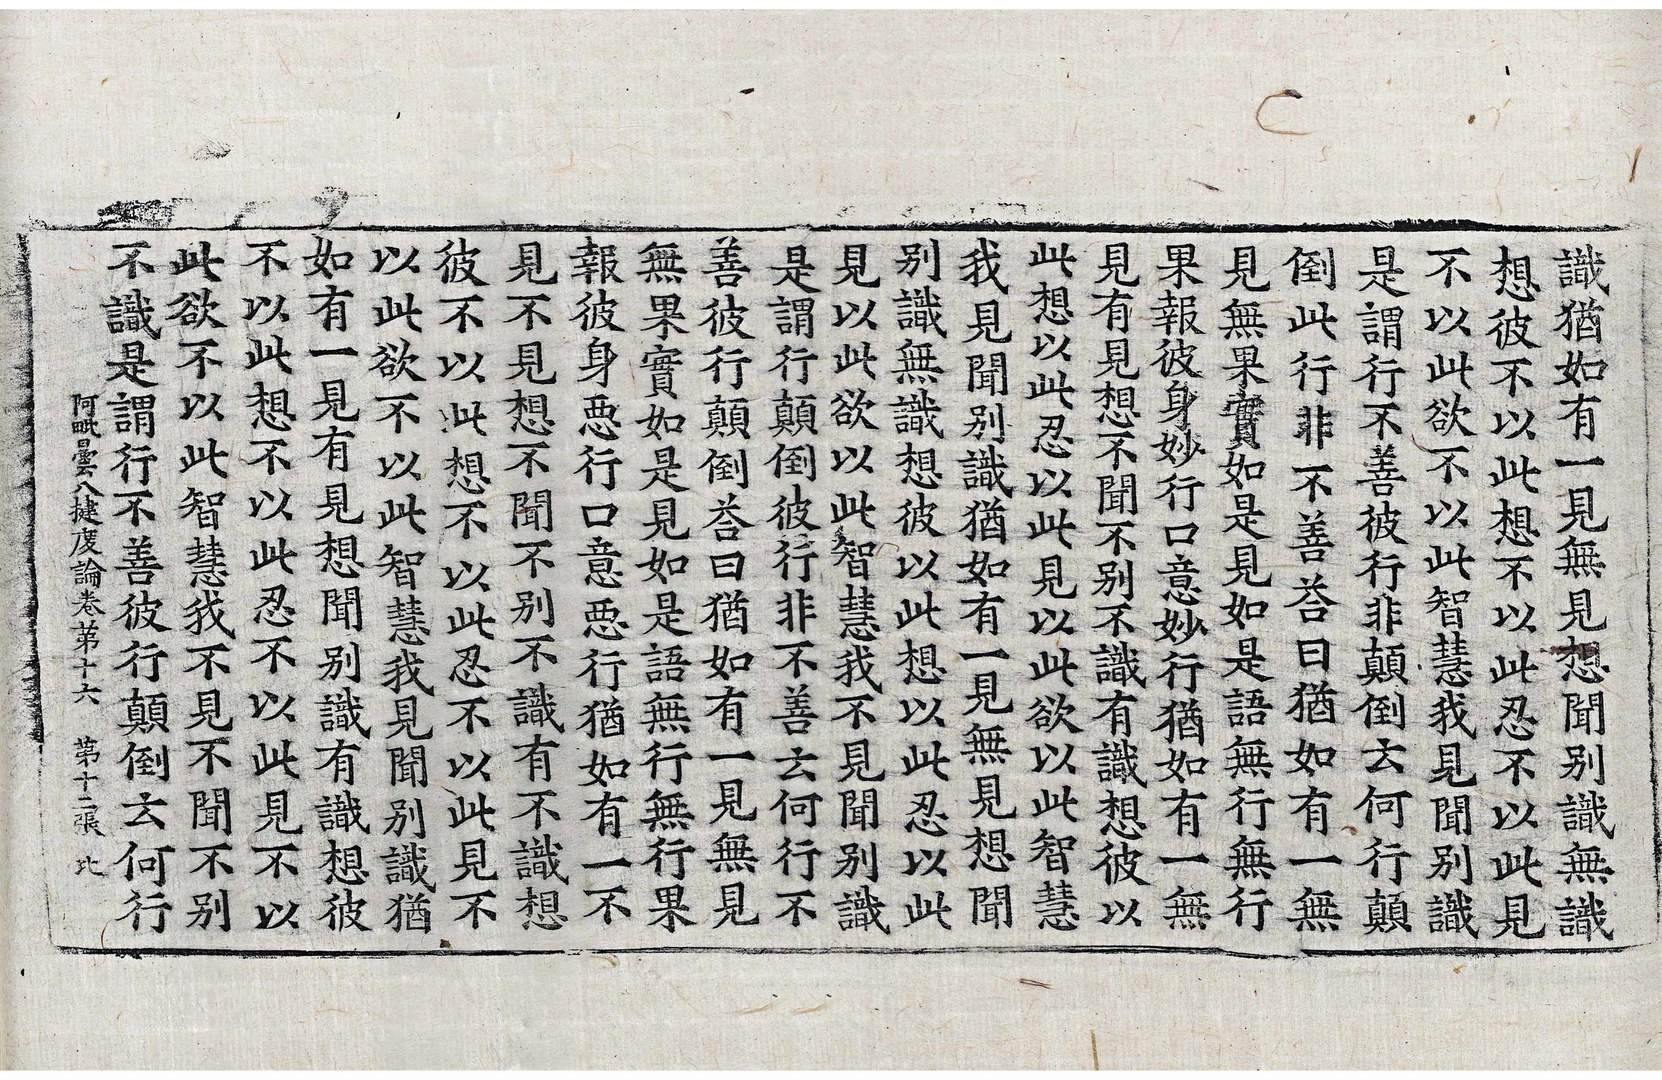 識猶如有一見無見想聞別識無識
想彼不以此想不以此忍不以此見
不以此欲不以此智慧我見聞別識
是謂行不善彼行非顛倒云何行顛
倒此行非不善荅曰猶如有一無
見無果實如是見如是語無行無行
果報彼身妙行口意妙行猶如有一無
見有見想不聞不別不識有識想彼以
此想以此忍以此見以此欲以此智慧
我見聞別識猶如有一見無見想聞
別識無識想彼以此想以此忍以此
見以此欲以此智慧我不見聞別識
是謂行顛倒彼行非不善云何行不
善彼行顛倒荅曰猶如有一見無見
無果實如是見如是語無行無行果
報彼身惡行口意惡行猶如有一不
見不見想不聞不別不識有不識想
彼不以此想不以此忍不以此見不
以此欲不以此智慧我見聞別識猶
如有一見有見想聞別識有識想彼
不以此想不以此忍不以此見不以
此欲不以此智慧我不見不聞不別
不識是謂行不善彼行顛倒云何行
阿毗曇八揵度論卷第十六 第十二張 此